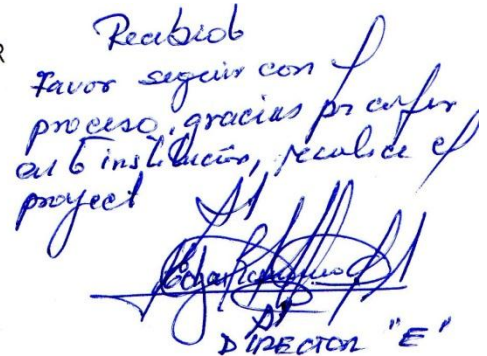 R
Recibido
Favor seguir con el
proceso, gracias por confiar
en la institución, realice el
proyect
DIRECTOR "E"